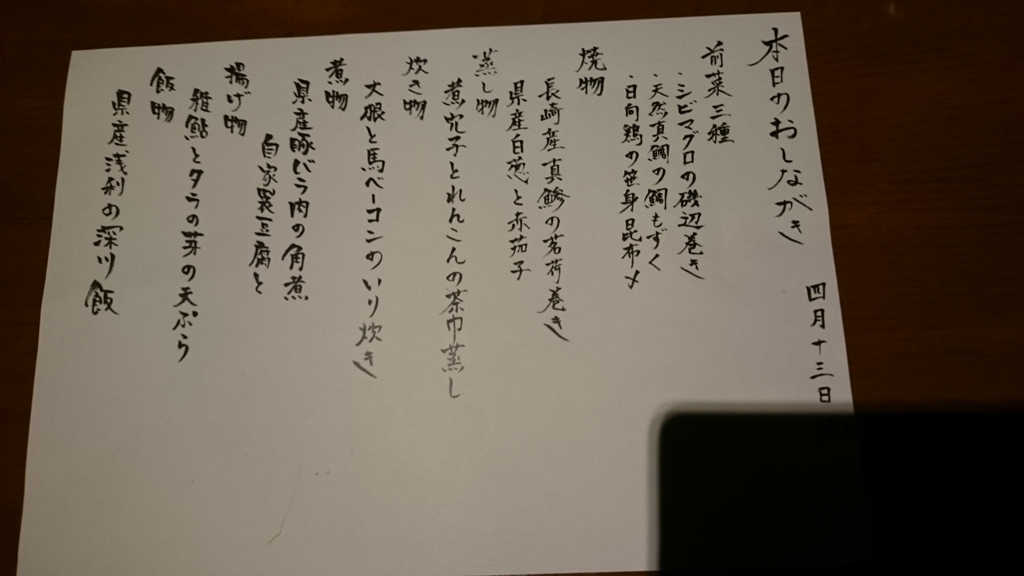 本日のおしながき
四月十三日
前菜三種
・シビマグロの磯辺巻き
・天然真鯛の鯛もずく
・日向鶏の笹身昆布〆
焼物
長崎産真鯵の茗荷巻き
県産白葱と赤茄子
蒸し物
煮穴子とれんこんの茶巾蒸し
炊き物
大根と馬ベーコンのいり炊き
煮物
県産豚バラ肉の角煮
自家製豆腐と
揚げ物
稚鮎とタラの芽の天ぷら
飯物
県産浅利の深川飯